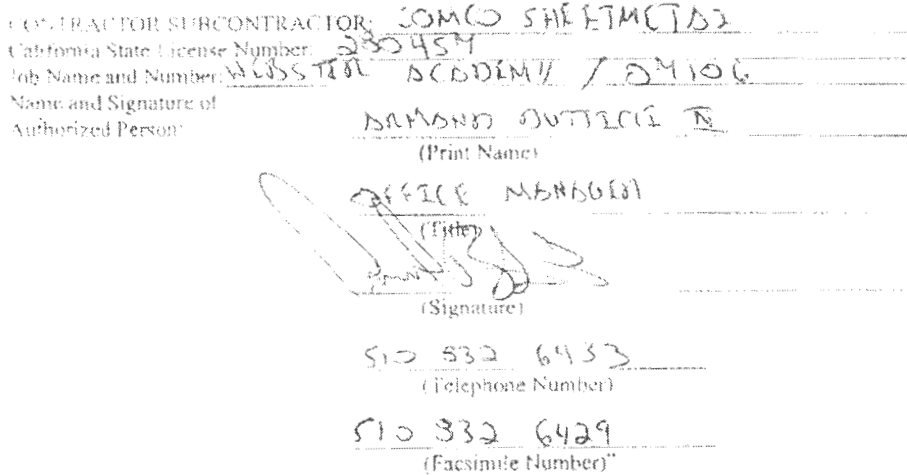 CONTRACTOR SUBCONTRACTOR: COMCO SHEETMETAL
California State License Number: 230454
Job Name and Number: WEBSTER ACADEMY / 04106
Name and Signature of
Authorized Person:
ARMAND
(Print Name)
OFFICE MANAGER
(Title)
(Signature)
510 832 6433
(Telephone Number)
510 832 6429
(Facsimile Number)"